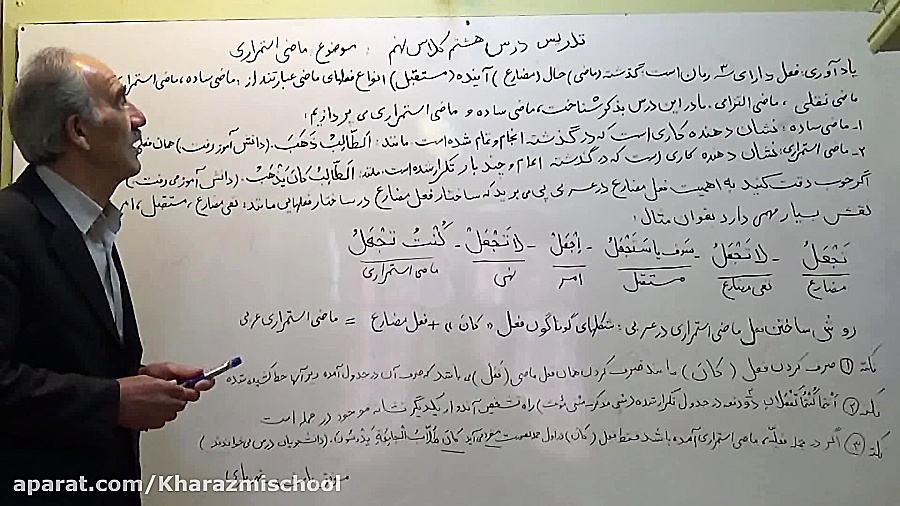 تدریس درس هشتم کلاس نهم : موضوع ماضی استمراری
یادآوری: فعل دارای ۳ زمان است: گذشته (ماضی) حال (مضارع) آینده (مستقبل) انواع فعلهای ماضی عبارتند از: ماضی ساده، ماضی استمراری
ماضی نقلی، ماضی التزامی. مادر این درس بذکر شناخت، ماضی ساده و ماضی استمراری می پردازیم:
۱- ماضی ساده: نشان دهنده کاری است که در گذشته انجام و تمام شده است. مانند: الطّالِبُ ذَهَبَ. (دانش آموز رفت) همان فعل
۲- ماضی استمراری: نشان دهنده کاری است که در گذشته انجام و چند بار تکرار شده است. مانند: الطّالِبُ کانَ یَذْهَبُ. (دانش آموز می رفت.)
اگر خوب دقت کنید به اهمیت فعل مضارع در عربی پی می برید که ساختار فعل مضارع در ساختار فعلهایی مانند: نفی مضارع، مستقبل، امر
نقش بسیار مهمی دارد بعنوان مثال:
تَجْعَلُ - لا تَجْعَلُ - سَوفَ یا سَتَجْعَلُ - اِجْعَلْ - لا تَجْعَلْ - کُنْتَ تَجْعَلُ
مضارع نفی مضارع مستقبل امر نهی ماضی استمراری
روش ساختن فعل ماضی استمراری در عربی: شکلهای گوناگون فعل «کانَ» + فعل مضارع = ماضی استمراری عربی
نکته ۱) صرف کردن فعل (کانَ) مانند صرف کردن همان فعل ماضی (فَعَلَ) می باشد که صرف آن در جدول آمده و زیر آنها خط کشیده شده
نکته ۲) أنتما کُنتُما تَفعَلانِ دو دفعه در جدول تکرار شده (مثنی مذکر - مثنی مؤنث) راه تشخیص آندو از یکدیگر نشانه موجود در جمله است
نکته ۳) اگر در جمله فعلیّه، ماضی استمراری آمده باشد فقط فعل (کانَ) در اول جمله می آید کانَ طُلّابُ یَدْرُسونَ. (دانشجویان درس می خواندند)
aparat.com/Kharazmischool